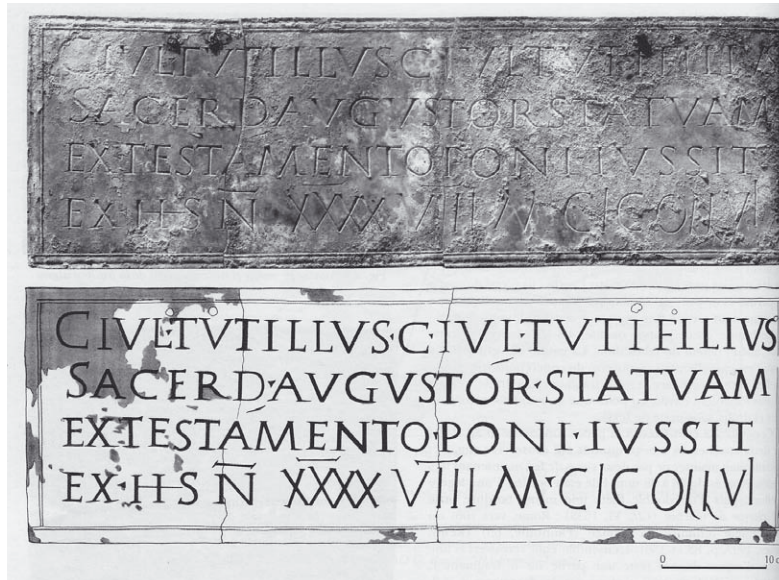 C IVL·TVTILLVS C IVLTVTI FILIV
SACERD·AVGVSTOR STATVAM
EX·TESTAMENTO PONI·IVSSIT
EX·HS N̅ XXXX VIII
C IVL·TVTILLVS·C·IVL·TVTI FILIVS
SACERD·AVGVSTOR·STATVAM
EX·TESTAMENTO·PONI·IVSSIT
EX·HS N̅ X̅X̅XX VI̅I̅I M·CIC
0 10